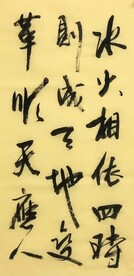 水火相依四時
則成天地變
革順天應人